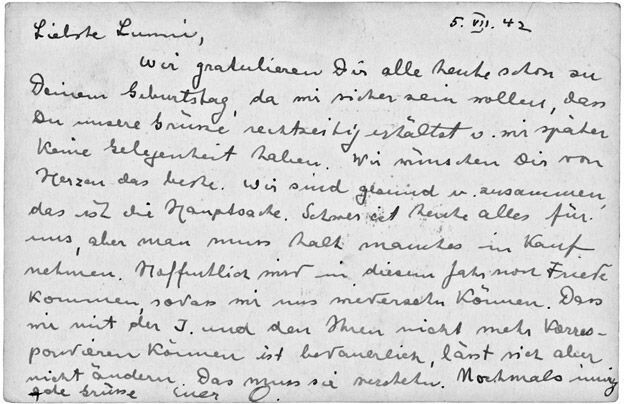 5. VII. 42
Liebste Lummi,
Wir gratulieren Dir alle heute schon zu
Deinem Geburtstag, da wir sicher sein wollen, dass
Du unsere Grüsse rechtzeitig erhältst u. wir später
keine Gelegenheit haben. Wir wünschen Dir von
Herzen das beste. Wir sind gesund u. zusammen,
das ist die Hauptsache. Schwer ist heute alles für
uns, aber man muss halt manches in Kauf
nehmen. Hoffentlich wird in diesem Jahr noch Friede
kommen, sodass wir uns wiedersehn können. Dass
wir mit der I. und den Ihren nicht mehr korres-
pondieren können ist bedauerlich, lässt sich aber
nicht ändern. Das muss sie verstehn. Nochmals innig
Grüsse Euer O.